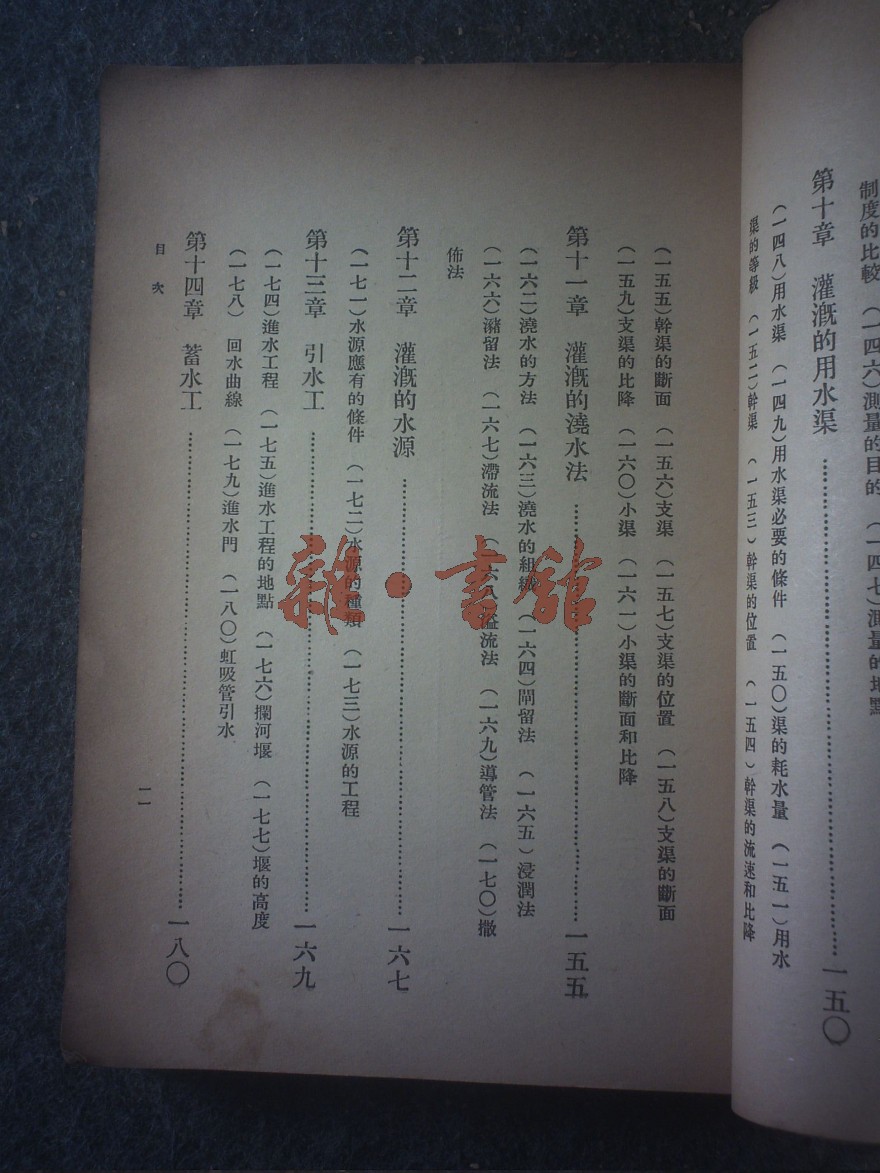 制度的比較　(一四六)測量的目的　(一四七)測量的地點
第十章　灌漑的用水渠……一五〇
(一四八)用水渠　(一四九)用水渠必要的條件　(一五〇)渠的耗水量　(一五一)用水
渠的等級　(一五二)幹渠　(一五三)幹渠的位置　(一五四)幹渠的流速和比降
(一五五)幹渠的斷面　(一五六)支渠　(一五七)支渠的位置　(一五八)支渠的斷面
(一五九)支渠的比降　(一六〇)小渠　(一六一)小渠的斷面和比降
第十一章　灌漑的澆水法……一五五
(一六二)澆水的方法　(一六三)澆水的組織　(一六四)閘留法　(一六五)浸潤法
(一六六)瀦留法　(一六七)滯流法　(一六八)溢流法　(一六九)導管法　(一七〇)撒
佈法
第十二章　灌漑的水源……一六七
(一七一)水源應有的條件　(一七二)水源的種類　(一七三)水源的工程
第十三章　引水工……一六九
(一七四)進水工程　(一七五)進水工程的地點　(一七六)攔河堰　(一七七)堰的高度
(一七八)回水曲線　(一七九)進水門　(一八〇)虹吸管引水
第十四章　蓄水工……一八〇
目次
一一
雜·書館